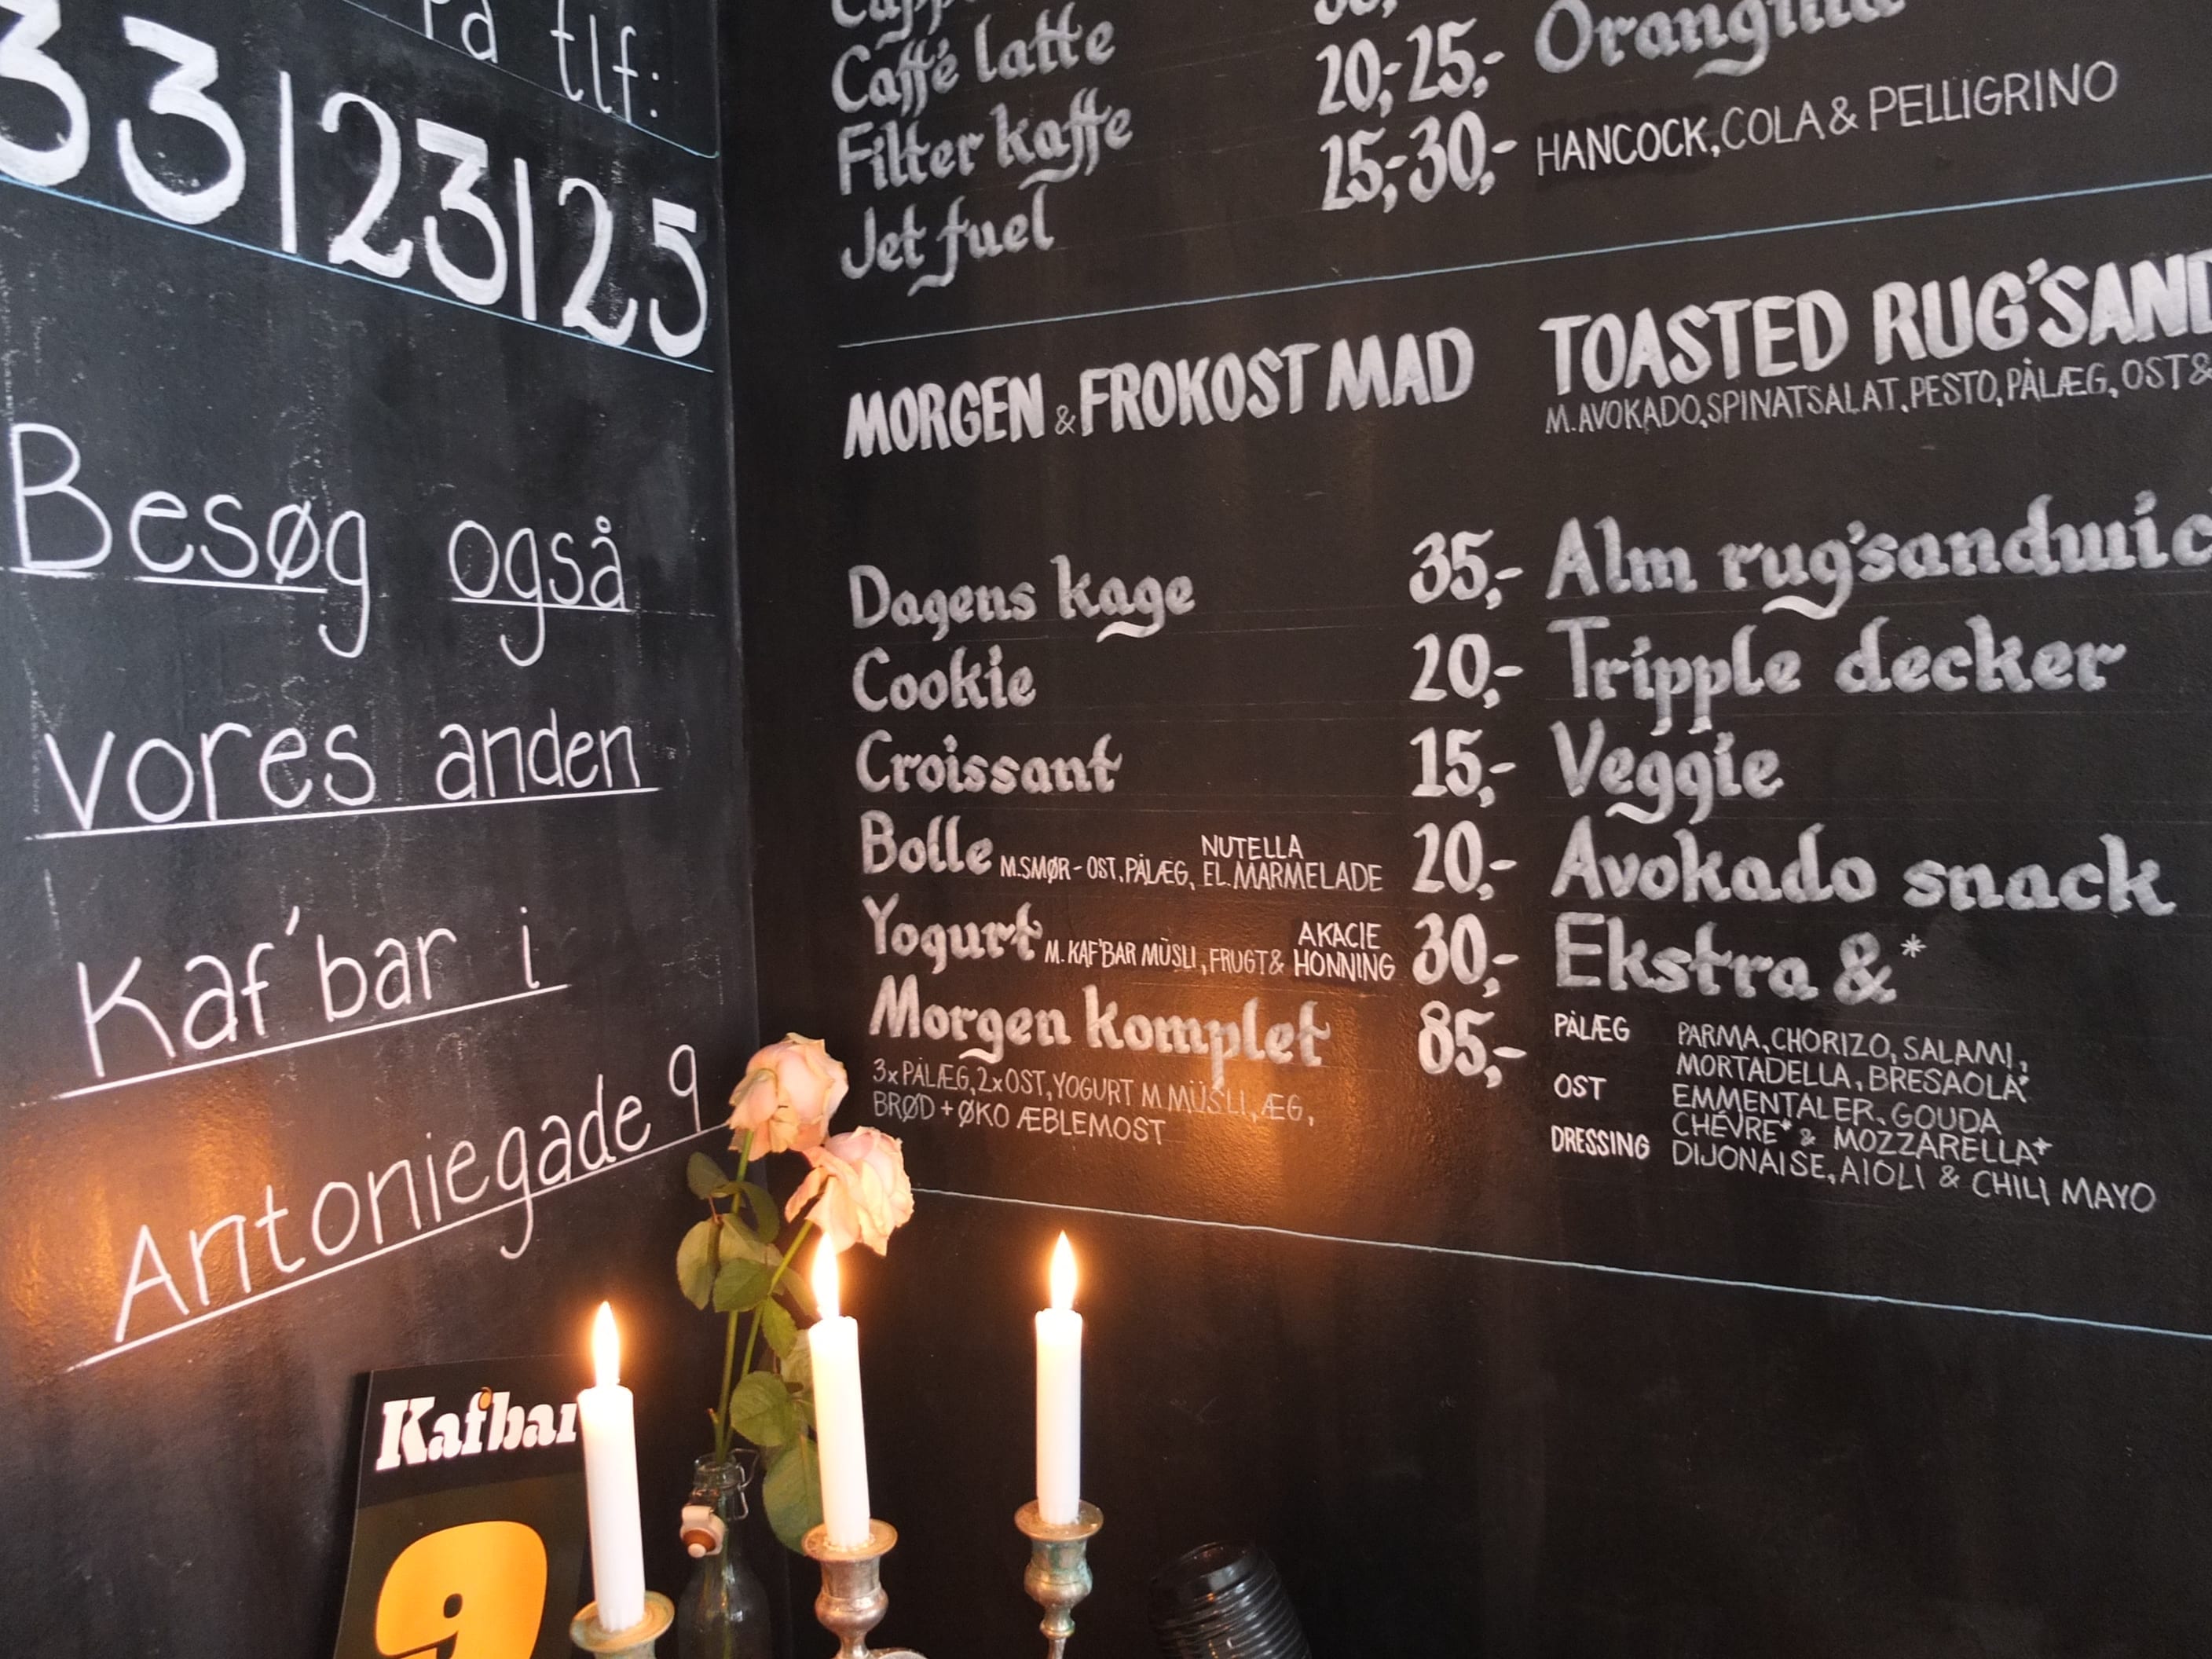 På tlf:
33123125
Besøg også
vores anden
Kaf'bar i
Antoniegade 9
Kaf'bar
9
Caffé latte
20,- 25,-
Filter kaffe
15,- 30,-
Jet fuel
HANCOCK, COLA & PELLIGRINO
MORGEN & FROKOST MAD
Dagens kage 35,-
Cookie 20,-
Croissant 15,-
Bolle M. SMØR - OST, PÅLÆG, NUTELLA EL. MARMELADE 20,-
Yogurt M. KAF'BAR MÜSLI, FRUGT & AKACIE HONNING 30,-
Morgen komplet 85,-
3x PÅLÆG, 2x OST, YOGURT M. MÜSLI, ÆG,
BRØD + ØKO ÆBLEMOST
TOASTED
M. AVOKADO, SPINATSALAT, PESTO, PÅLÆG, OST &
Alm
Tripple decker
Veggie
Avokado snack
Ekstra &*
PÅLÆG PARMA, CHORIZO, SALAMI,
MORTADELLA, BRESAOLA*
OST EMMENTALER, GOUDA
CHÉVRE* & MOZZARELLA*
DRESSING DIJONAISE, AIOLI & CHILI MAYO